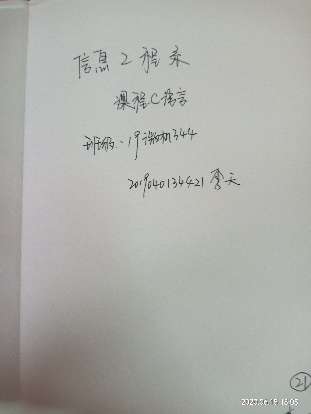 信息工程系
课程C语言
班级:19计算机344
2019040134421 李天
21
2020.6.19 16:05